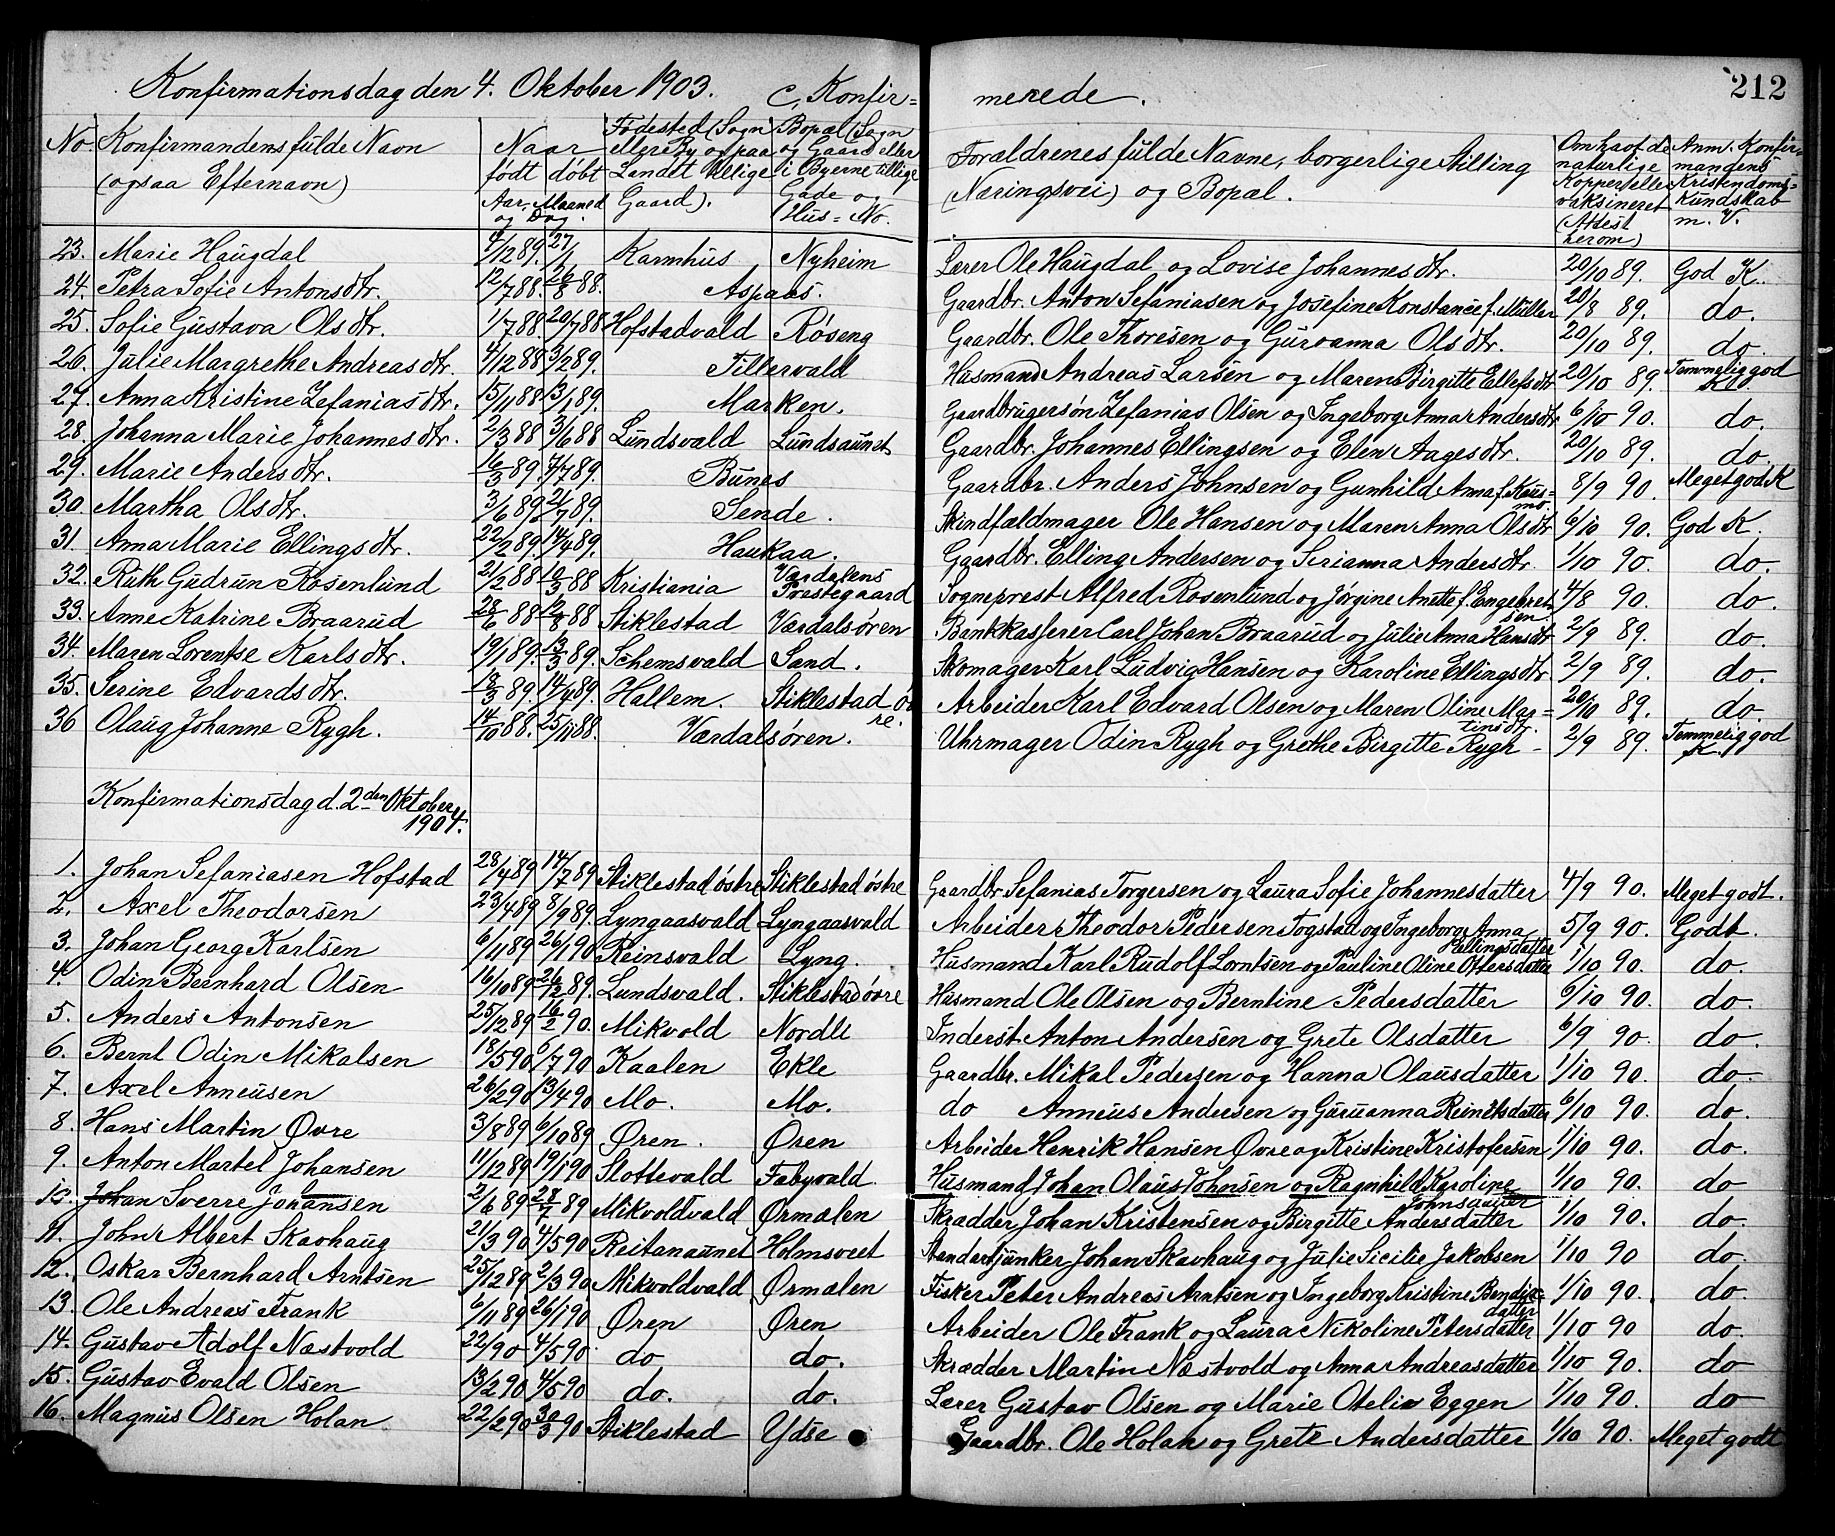 212
Konfirmationsdag den 4. Oktober 1903. C, Konfir= merede.
No. Konfirmandens fulde Navn (ogsaa Efternavn) Naar født døbt Aar, Maaned og Dag. Fødested (Sogn eller By og paa Landet tillige Gaard). Bopæl (Sogn og Gaard eller i Byerne tillige Gade og Hus=No. Forældrenes fulde Navne, borgerlige Stilling (Næringsvei) og Bopæl. Om havt de naturlige Kopper eller vaksineret (Attest herom) Anm. Konfirmandens Kristendoms=kundskab m. V.
23. Marie Haugdal 4/12 89. 27/1 Karmhus Nyheim Lærer Ole Haugdal og Lovise Johannesdtr. 20/10 89. God K.
24. Petra Sofie Antonsdtr. 12/7 88. 26/8 88. Aspaas. Gaardbr. Anton Sefaniasen og Josefine Konstance f. Müller 20/8 89. do.
25. Sofie Gustava Olsdtr. 1/7 88. 20/7 88 Hofstadvald Røseng Gaardbr. Ole Thoresen og Guroanna Olsdtr. 20/10 89. do.
26. Julie Margrethe Andreasdtr. 4/12 88 3/2 89. Tillervald Husmand Andreas Larsen og Maren Birgitte Ellefsdtr 20/10 89. Temmelig god K.
27. Anna Kristine Zefaniasdtr. 15/11 88. 13/1 89. Marken. Gaardbrugersøn Zefanias Olsen og Ingeborg Anna Andersdtr 6/10 90. do.
28. Johanna Marie Johannesdtr. 2/3 88 3/6 88 Lundsvald Lundsaunet Gaardbr. Johannes Ellingsen og Elen Aagesdtr. 20/10 89. do.
29. Marie Andersdtr. 16/3 89. 7/7 89. Bunes Gaardbr. Anders Johnsen og Gunhild Anna f. Kausmo. 8/9 90. Meget god K
30. Martha Olsdtr. 3/6 89. 21/7 89. Sende. Skindfældmager Ole Hansen og Maren Anna Olsdtr 6/10 90. God K.
31. Anna Marie Ellingsdtr. 22/2 89. 14/4 89. Haukaa. Gaardbr. Elling Andersen og Serianna Andersdtr. 1/10 90. do.
32. Ruth Gudrun Rosenlund 21/2 88 18/3 88 Kristiania Værdalens Præstegaard Sogneprest Alfred Rosenlund og Jørgine Anette f. Engebretsen. 4/8 90. do.
33. Anne Katrine Braarud 28/6 88 12/8 88 Stiklestad Værdalsøren Bankkasserer Carl Johan Braarud og Julie Anna Hansdtr. 2/9 89. do.
34. Maren Lorentse Karlsdtr. 19/1 89. 13/3 89. Schemsvald Sand. Skomager Karl Ludvig Hansen og Karoline Ellingsdtr. 2/9 89. do.
35. Serine Edvardsdtr. 18/3 89. 14/4 89. Hallem. Stiklestad øvre. Arbeider Karl Edvard Olsen og Maren Oline Martinsdtr. 20/10 89. do.
36 Olaug Johanne Rygh. 14/10 88. 25/11 88. Værdalsøren. Uhrmager Odin Rygh og Grethe Birgitte Rygh - 2/9 89. Temmelig god K.
Konfirmationsdag d. 2den Oktober 1904.
1. Johan Sefaniasen Hofstad 28/4 89 14/7 89 Stiklestad østre Stiklestad østre Gaardbr. Sefanias Torgersen og Laura Sofie Johannesdatter 4/9 90. Meget godt.
2. Axel Theodorsen 23/4 89 8/9 89. Lyngaasvald Lyngaasvald Arbeider Theodor Pedersen Fogstad og Ingeborg Anna Hellingsdatter 5/9 90. Godt.
3. Johan Georg Karlsen 6/11 89 26/1 90 Reinsvald Lyng. Husmand Karl Rudolf Lorntsen og Pauline Oline Ottersdatter 1/10 90. do.
4. Odin Bernhard Olsen 16/10 89 26/12 89. Lundsvald. Stiklestad øvre Husmand Ole Olsen og Berntine Pedersdatter 6/10 90. do.
5. Anders Antonsen 25/12 89 16/2 90. Mikvold Nordli Inderst Anton Andersen og Grete Olsdatter 6/9 90. do.
6. Bernt Odin Mikalsen 18/5 90 6/7 90 Kaalen Ekle Gaardbr. Mikal Pedersen og Hanna Olausdatter 1/10 90. do.
7. Axel Anneusen 26/2 90 13/4 90 Mo. Mo. do Anneus Andersen og Guruanna Reinitsdatter 6/10 90. do.
8. Hans Martin Øvre 3/8 89 6/10 89 Øren. Øren Arbeider Henrik Hansen Øvre og Kristine Kristofersen 1/10 90. do.
9. Anton Martel Johansen 11/12 89 19/1 90 Slottevald Fabyvald. Husmand Johan Olaus Johnsen og Ragnhild Karoline Johnsdatter 1/10 90. do
10. Johan Sverre Johansen 2/6 89 28/7 89 Mikvoldvald Ørmælen Skrædder Johan Kristensen og Birgitte Andersdatter 1/10 90. do.
11. John Albert Skavhaug 21/3 90 4/5 90 Reitanaunet Holmsveet Standartjunker Johan Skavhaug og Julie Sicilie Jakobsen 1/10 90 do.
12. Oskar Bernhard Arntsen 25/12 89 2/3 90 Mikvoldvald Ørmælen Fisker Peter Andreas Arntsen og Ingeborg Kristine Bendixdatter 1/10 90. do.
13. Ole Andreas Frank 6/11 89 26/1 90 Øren Øren Arbeider Ole Frank og Laura Nikoline Petersdatter 1/10 90 do.
14. Gustav Adolf Næstvold 22/ 90 4/5 90. do do. Skrædder Martin Næstvold og Anna Andreasdatter 1/10 90. do
15. Gustav Evald Olsen 13/2 90 4/5 90 do. do. Lærer Gustav Olsen og Marie Otelie Eggen 1/10 90. do
16. Magnus Olsen Holan 22/2 90 30/3 90 Stiklestad Ydse Gaardbr. Ole Holan og Grete Andersdatter 1/10 90. Meget godt